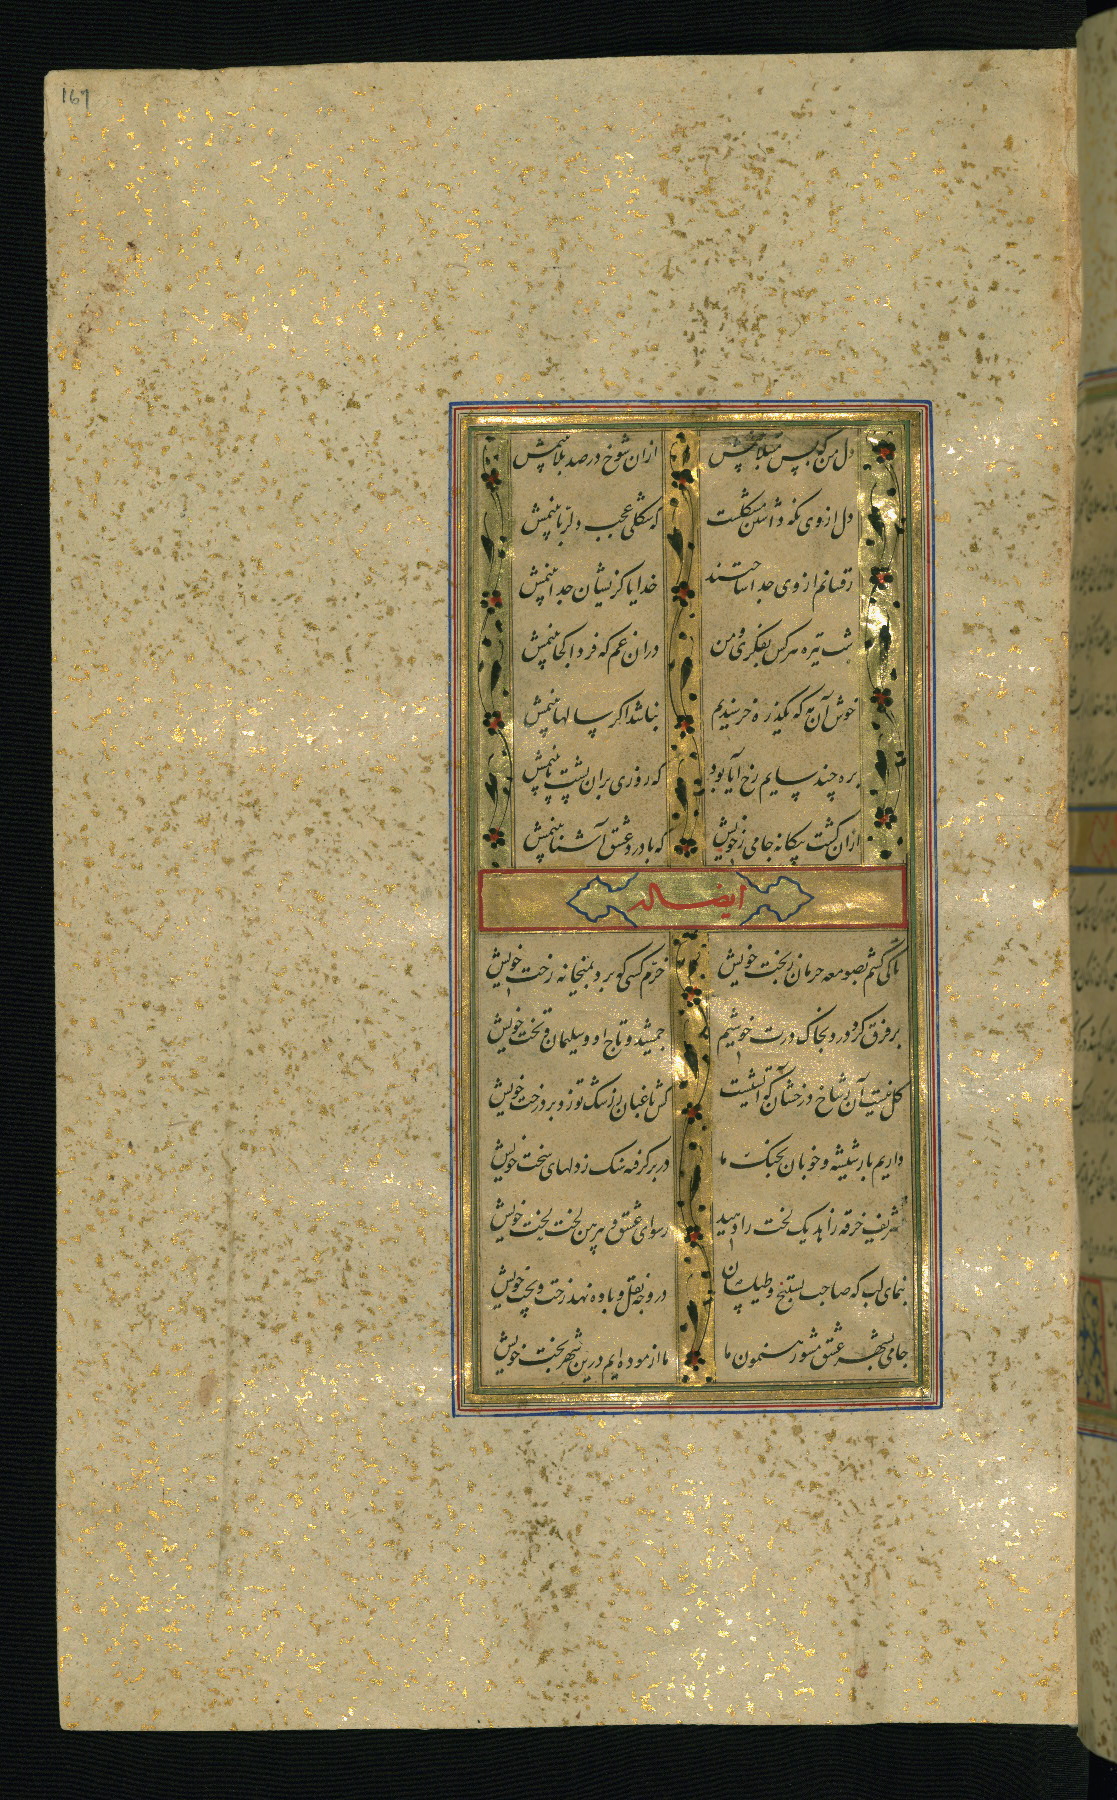 167
دل من که بس مبتلا بینمش ازان شوخ در صد بلا بینمش
دل از وی نکه داشتن مشکلست که شکلی عجب دلربا بینمش
رقیبانم از وی جدا ساختند خدایا کزیشان جدا بینمش
شب تیره هرکس بفکری و من دران غم که فردا کجا بینمش
خوش آن مه که یکذره خرسندیم نباشد اکر سالها بینمش
بره چند سایم رخ آیا بود که روزی بران پشت پا بینمش
ازان کشت بیکانه جامی ز خویش که با درد عشق آشنا بینمش
ایضا له
تا کی کشم بصومعه حرمان ز بخت خویش خرم کسی کو برد بمیخانه رخت خویش
بر فرق کرد درد بخاک درت خوشیم جمشید و تاج او و سلیمان و تخت خویش
کل نیست آن بشاخ درخشان که آتشیست کش باغبان ز رشک تو زد بر درخت خویش
داریم بار شیشه و خوبان بجنک ما در بر کرفته سنک ز دلهای سخت خویش
تشریف خرقه زاهد یک لخت را دهید رسوای عشق و پیرهن لخت لخت خویش
بنمای لب که صاحب تسبیح و طیلسان در وجه نقل و باده نهد رخت و پخت خویش
جامی بشهر عشق مشو رهنمون ما ما آزموده‌ایم درین شهر بخت خویش